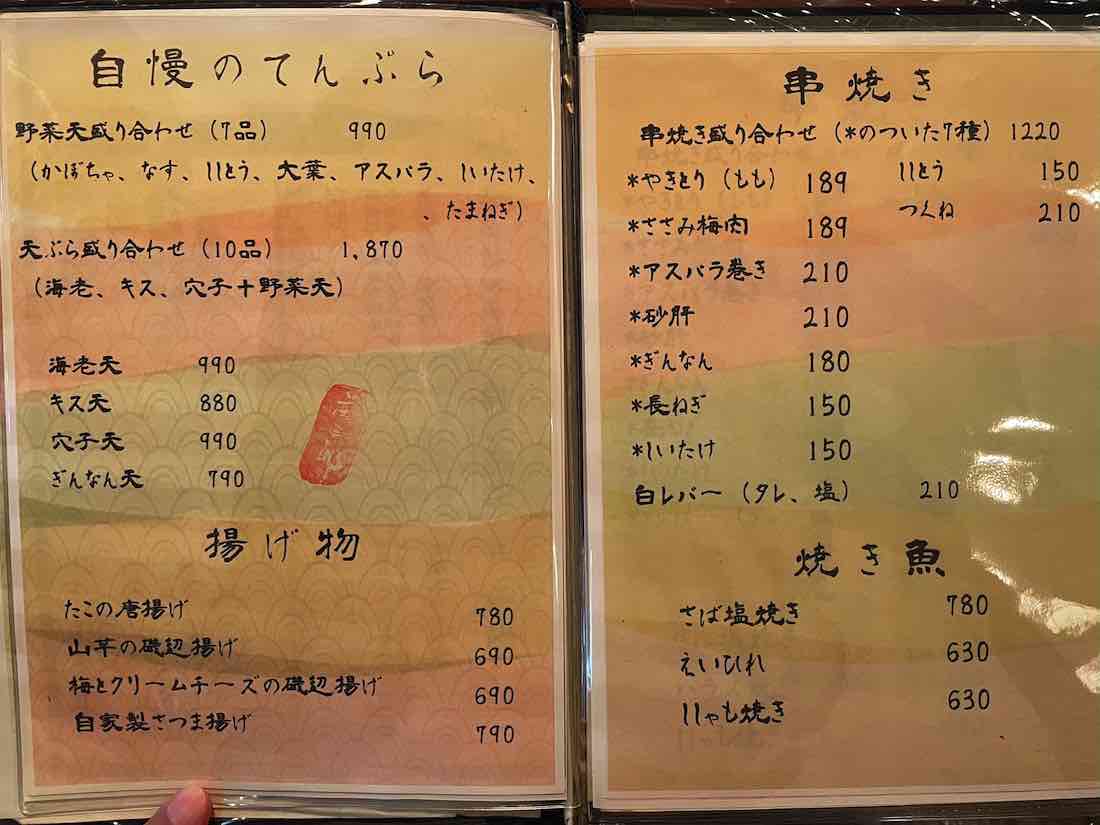 自慢のてんぷら
野菜天盛り合わせ（7品） 990
（かぼちゃ、なす、ししとう、大葉、アスパラ、しいたけ、
、たまねぎ）
天ぷら盛り合わせ（10品） 1,870
（海老、キス、穴子＋野菜天）
海老天 990
キス天 880
穴子天 990
ぎんなん天 790
揚げ物
たこの唐揚げ 780
山芋の磯辺揚げ 690
梅とクリームチーズの磯辺揚げ 690
自家製さつま揚げ 790
串焼き
串焼き盛り合わせ（*のついた7種） 1220
*やきとり（もも） 189
*ささみ梅肉 189
*アスパラ巻き 210
*砂肝 210
*ぎんなん 180
*長ねぎ 150
*しいたけ 150
白レバー（タレ、塩） 210
ししとう 150
つくね 210
焼き魚
さば塩焼き 780
えいひれ 630
ししゃも焼き 630